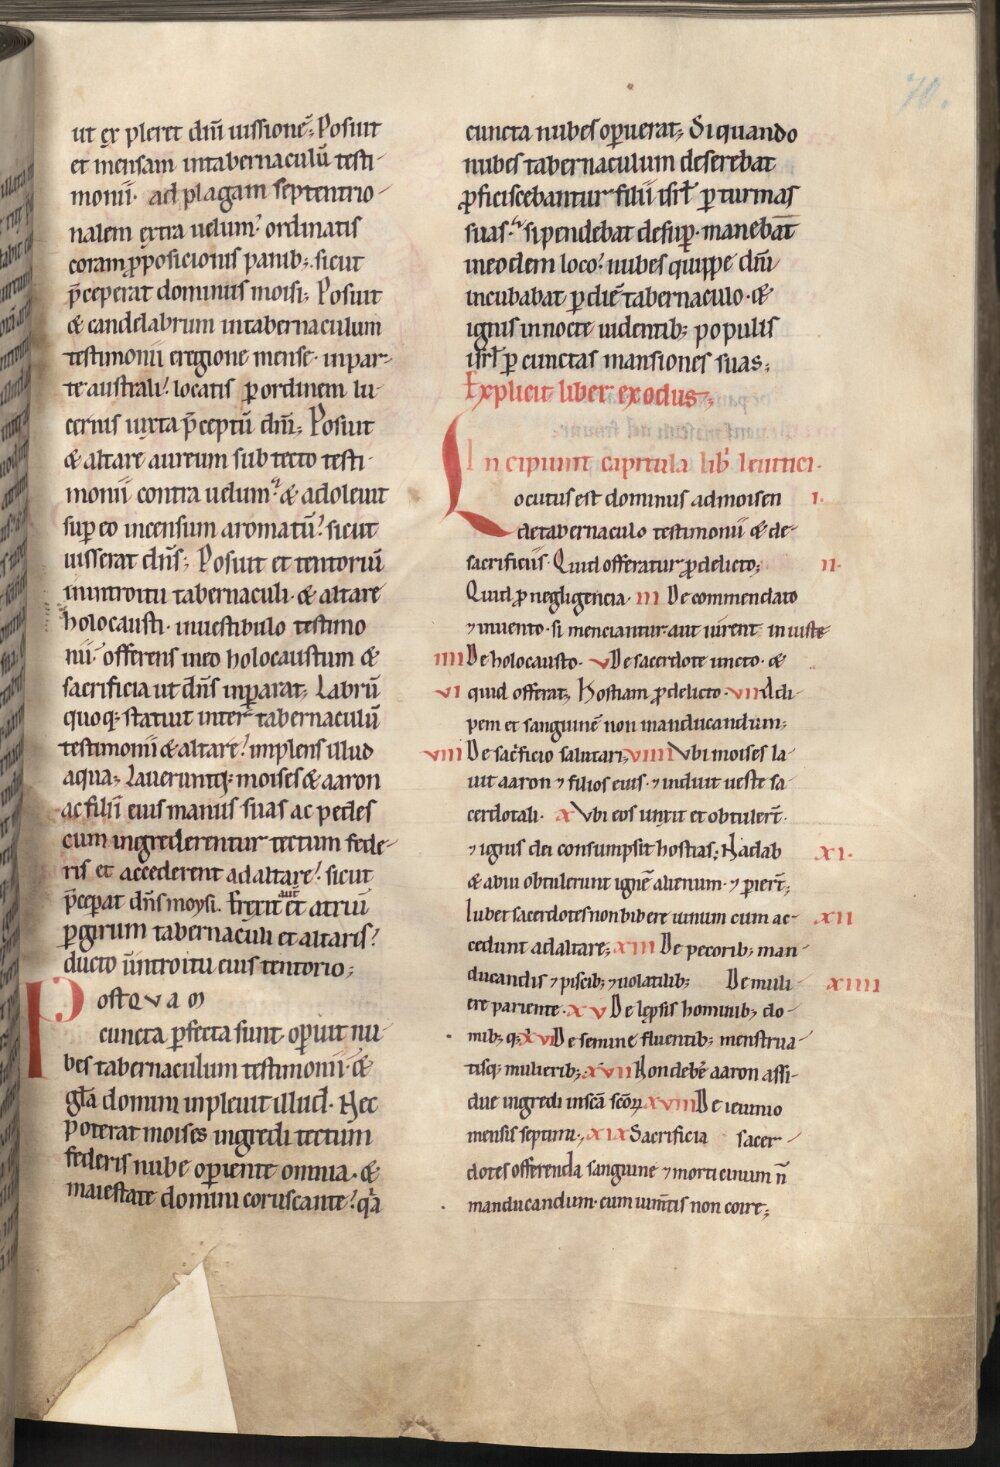 70.
ut expleret dñi iussionē; Posuit
et mensam in tabernaculū testi-
monii. ad plagam septentrio-
nalem extra uelum. ordinatis
coram ꝓposicionis panib; sicut
p̄ceperat dominus moisi; Posuit
& candelabrum in tabernaculum
testimonii e regione mense. in par-
te australi. locatis p ordinem lu-
cernis iuxta p̄ceptū dñi; Posuit
& altare aureum sub tecto testi-
monii contra uelum. & adoleuit
sup eo incensum aromatū. sicut
iusserat dñs; Posuit et tentoriū
in introitu tabernaculi. & altare
holocausti. in uestibulo testimo
nii. offerens in eo holocaustum &
sacrificia ut dñs inparat; Labrū
quoq; statuit inter tabernaculū
testimonii & altare. implens illud
aqua; Laueruntq; moises & aaron
ac filii eius manus suas ac pedes
cum ingrederentur tectum fede-
ris et accederent ad altare. sicut
p̄ceperat dñs moysi. Erexit et atriū
p girum tabernaculi et altaris.
ducto in introitu eius tentorio;
PostQVAM
cuncta pfecta sunt. opuit nu-
bes tabernaculum testimonii. &
gła domini inpleuit illud. Nec
poterat moises ingredi tectum
federis nube operiente omnia. &
maiestate domini coruscante. q̄a
cuncta nubes opuerat; Si quando
nubes tabernaculum deserebat
ꝓficiscebantur filii isrł p turmas
suas. si pendebat desup. manebāt
in eodem loco. nubes quippe dñi
incubabat p diē tabernaculo. &
ignis in nocte uidentib; populis
isrł p cunctas mansiones suas;
Explicit liber exodus;
Incipiunt capitula lib' leuitici.
Locutus est dominus ad moisen I.
de tabernaculo testimonii & de-
sacrificiis. Quid offeratur ꝓ delicto; II.
Quid ꝓ negligencia. III De commendato
⁊ inuento. si menciantur aut iurent iniuste
IIII De holocausto. V De sacerdote uncto. &
VI quid offerat; Hostiam ꝓ delicto. VII Adi-
pem et sanguinē non manducandum;
VIII De sacrficio salutari; VIIII Vbi moises la-
uit aaron ⁊ filios eius. ⁊ induit ueste sa-
cerdotali. X Vbi eos unxit et obtulert̄.
⁊ ignis dei consumpsit hostias; Nadab XI.
& abiu obtulerunt ignē alienum. ⁊ piert̄;
Iubet sacerdotes non bibere uinum cum ac- XII
cedunt ad altare; XIII De pecorib; man-
ducandis ⁊ piscib; ⁊ uolatilib; De muli- XIIII
ere pariente. XV De lepsis hominib; do-
mib; q; XVI De semine fluentib; menstrua-
tisq; mulierib; XVII Non debere aaron assi-
due ingredi in scā scōꝝ XVIII De ieiunio
mensis septimi; XIX Sacrificia sacer-
dotes offerenda sanguine ⁊ morticinum ñ
manducandum. cum iumt̄is non coire;